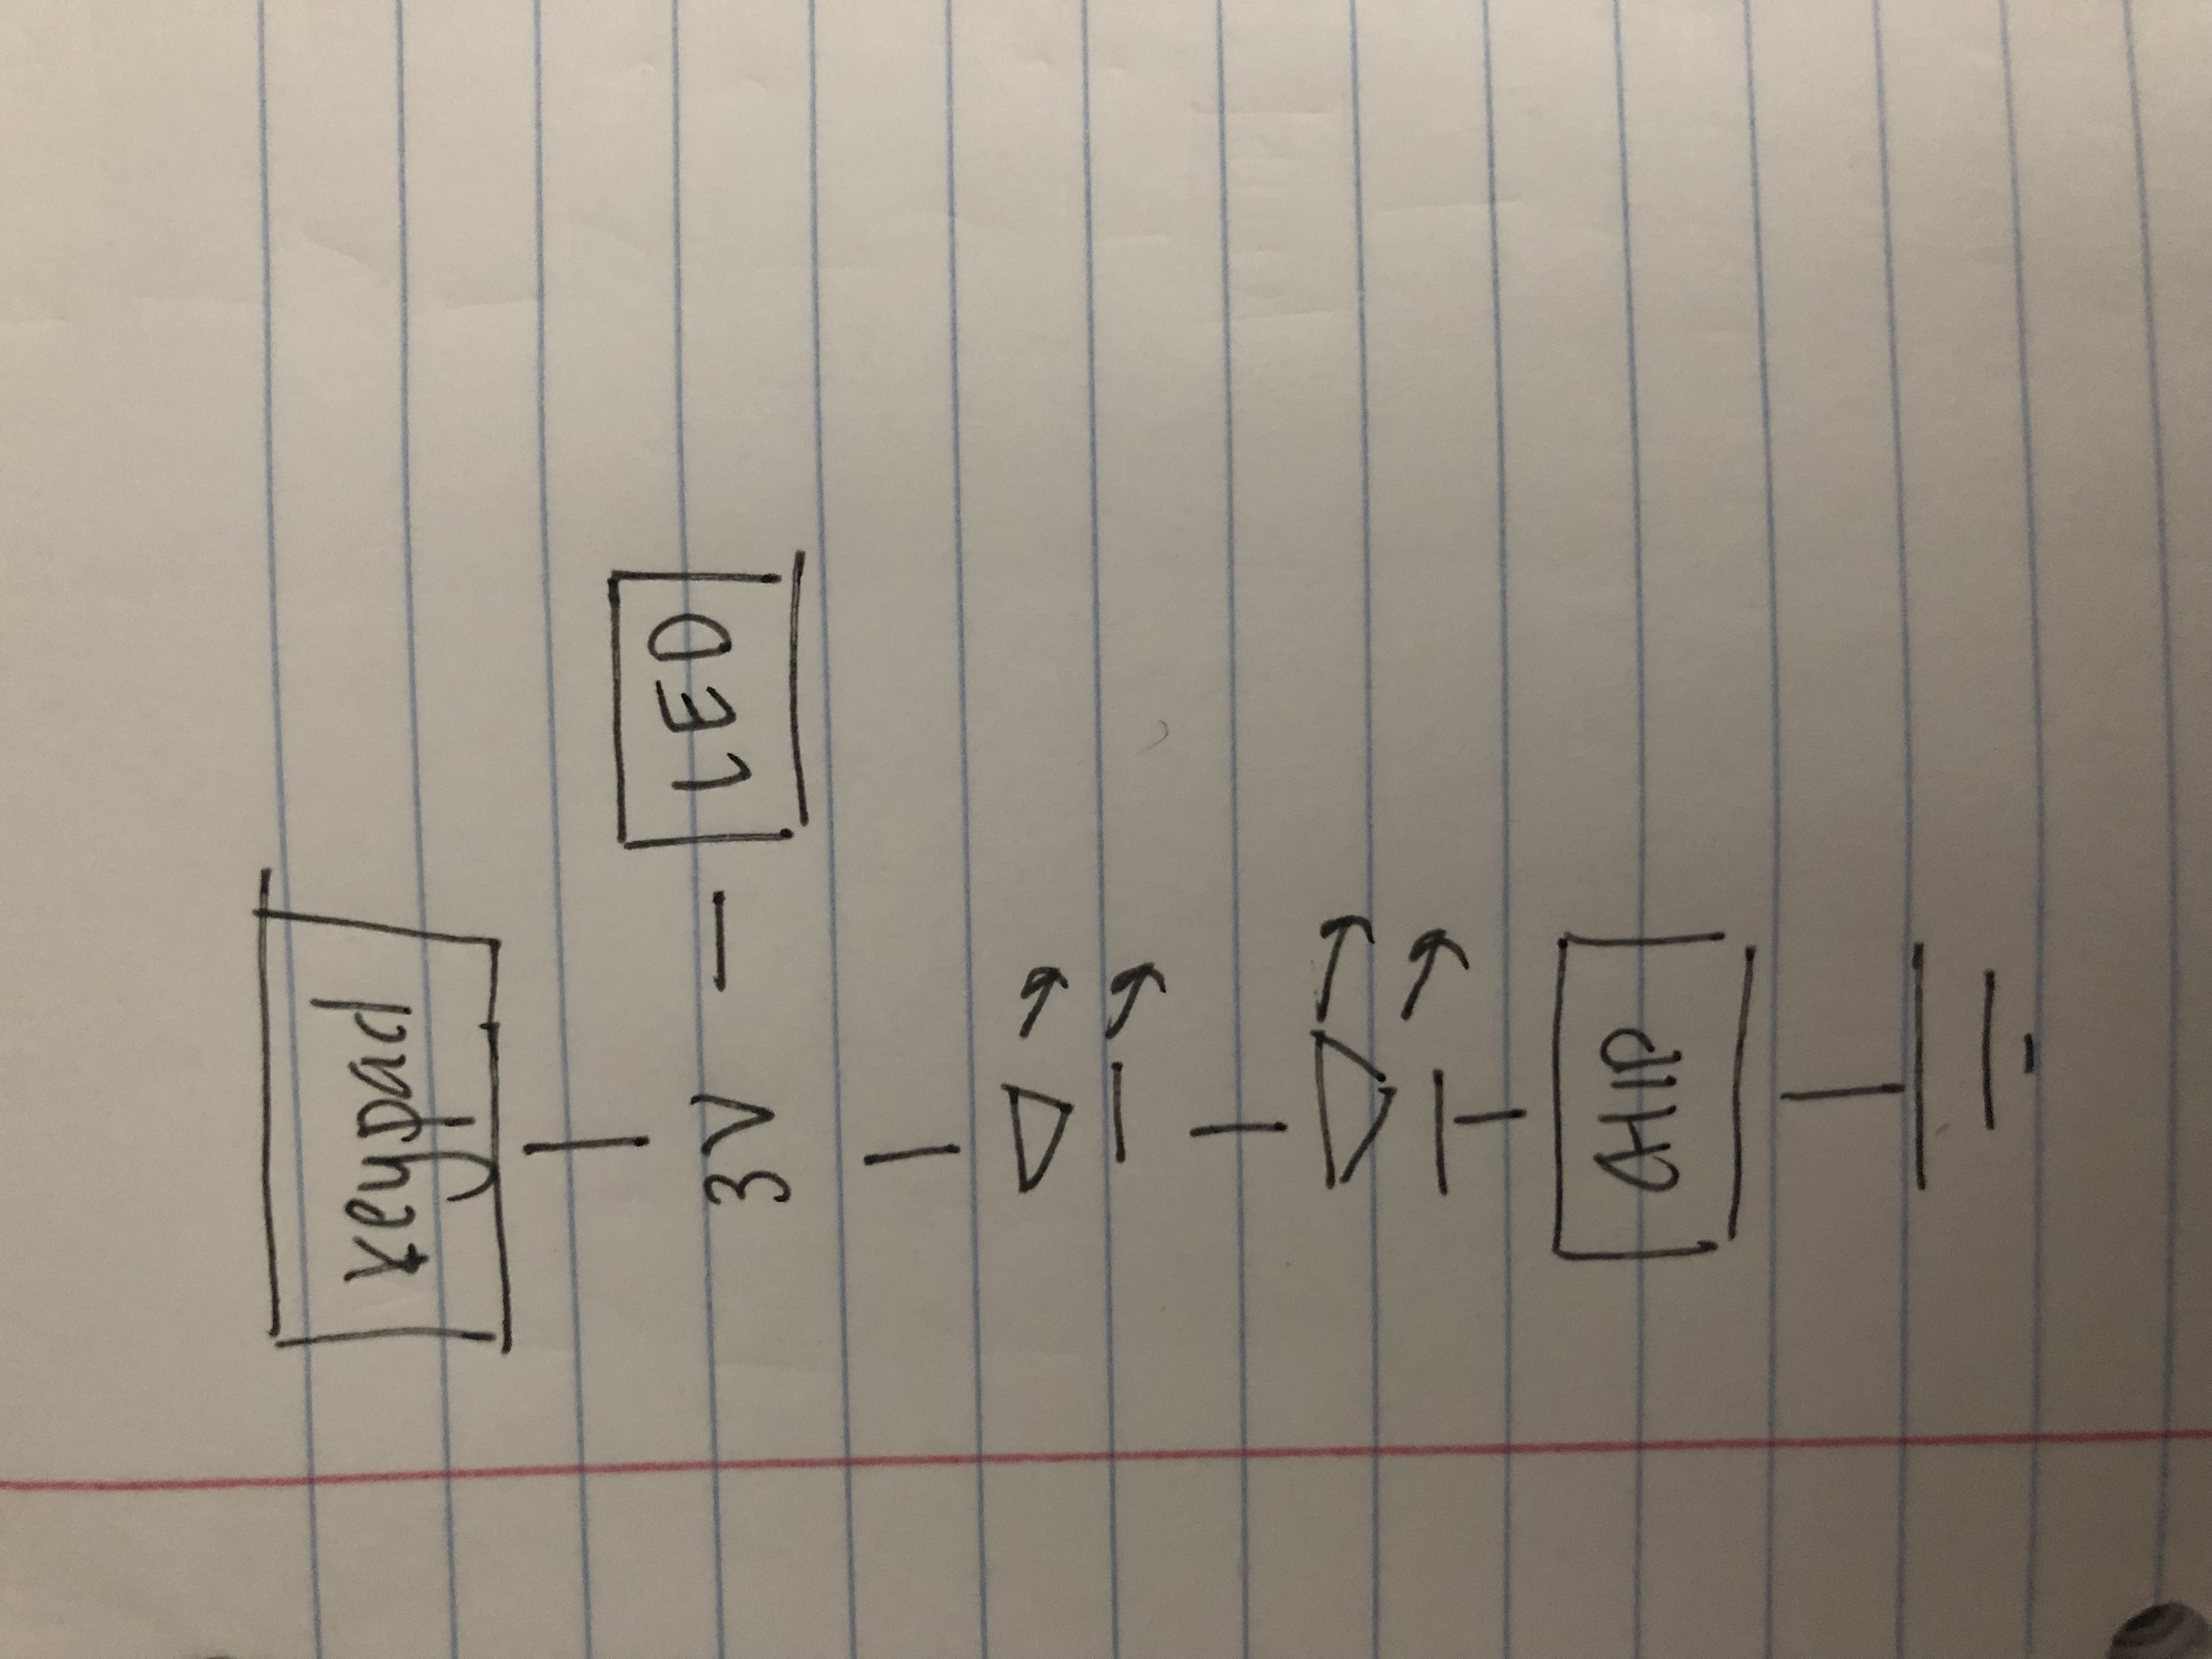 keypad
3V
LED
CHIP